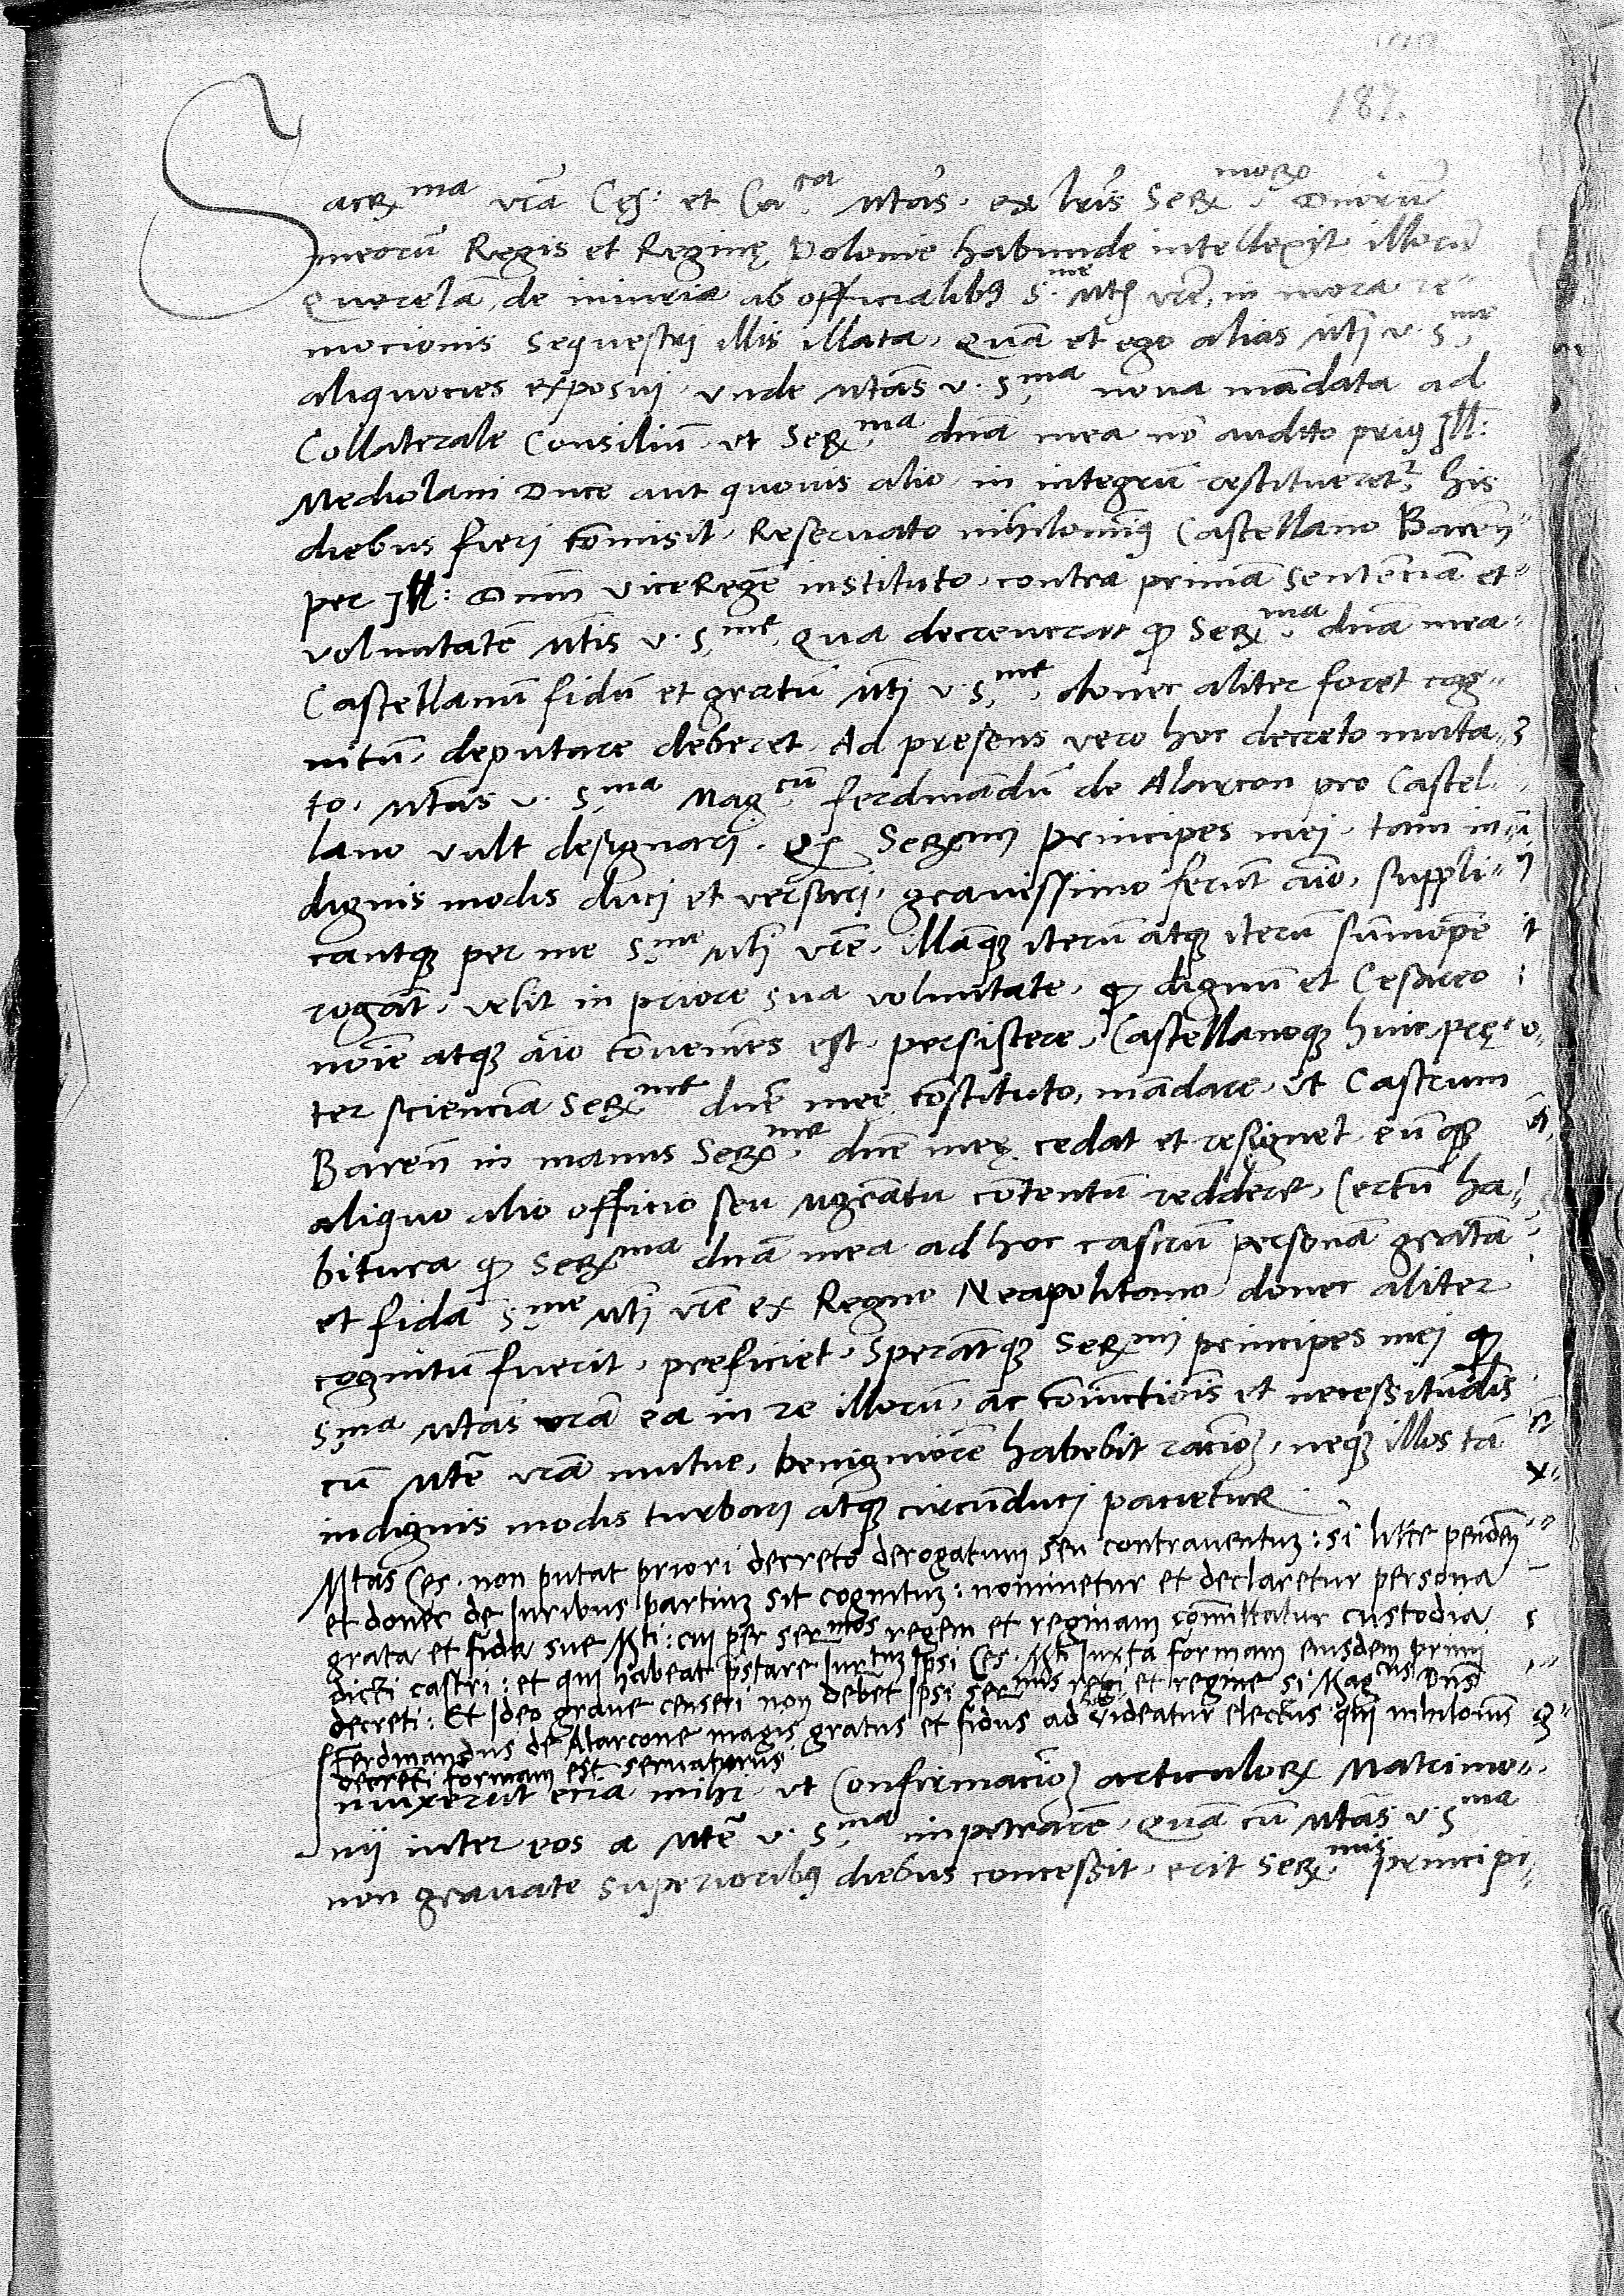 187.
Sacr^ma vrã Ces: et Ca^ca Mtas, ex lris Ser^morum Dnorũ
meorũ Regis et Reginę Polonie habunde intellexit illorũ
Querelã, de iniuria ab officialibus S.^me Mtis vre, in mora re-
mocionis sequestri illis illata, Quã et ego alias Mti v. S.^me
aliquocies exposui, vnde Mtas v. S.^ma noua mãdata ad
Collaterale Consiliũ, vt Ser^ma dna mea nõ audito prius Ill:
Mediolani Duce aut quouis alio, in integrũ restitueret^r, his
diebus fieri cõmisit, Reseruato nihilominus Castellano Bareñ
per Ill: Dnm viceRegẽ instituto, contra primã sentenciã et
voluntatẽ Mtis v. S.^me, Qua decreuerat q Ser^ma dna mea
Castellanũ fidũ et gratũ Mti v. S.^me, donec aliter foret cog-
nitũ, deputare deberet, Ad presens vero hoc decreto muta-
to, Mtas v. S.^ma Mag^cũ ferdinãdũ de Alarcon pro Castel-
lano vult designari. Qz Ser^mi principes mei, tam in-
dignis modis duci et versari, grauissimo ferũt aĩo, suppli-
cantqz per me S.^me Mti vre, illãqz iterũ atqz iterũ sũmopẽ
rogãt, velit in priore sua voluntate, q dignũ et Cesareo
noĩe atqz aĩo cõueniẽs est, persistere, Castellanoqz huic prę-
ter scienciã Ser^me dne mee cõstituto, mãdare, vt Castrum
Bareñ in manus Ser^me dne meę cedat et resignet, eũqz
aliquo alio officio seu contentũ reddere, Certũ ha-
bitura q Ser^ma dna mea ad hoc castrũ personã gratã
et fidã S^me Mti vre ex Regno Neapolitano, donec aliter
cognitũ fuerit, preficiet, Sperãtqz Ser^mi principes mei q
S^ma Mtas vrã eã in re illorũ, ac cõiũctiõis et necessitudĩs
cũ Mte vrã mutue, benigniorẽ habebit raciõem, neqz illos tã
indignis modis turbari atqz circũduci pacietur.
Mtas Ces. non putat priori decreto derogatum seu contrauentuz: si litte pendeñ
et donec de Iuribus partiuz sit cognituz: nominetur et declaretur persona
grata et fida sue Mti: cui per ser^mos regem et reginam cõmittatur custodia
dicti castri: et qui habeat p̃stare Iur^tuz Ipsi Ces. Mti Iuxta formam eiusdem primi
decreti: Et Ideo graue censeri non debet Ipsi ser^mis regi et regine si Mag^cus Dns
Ferdinandus de Alarcone magis gratus et fidus ad videatur electus qui nihilomĩs
decreti formam est seruaturus
niũxerũt eciã mihi, vt Confirmaciõem articulorum Matrimo-
nij inter eos a Mte v. S.^ma impetrarẽ, Quã cũ Mtas v. S^ma
non grauate superioribus diebus concessit, erit Ser^mis principi-